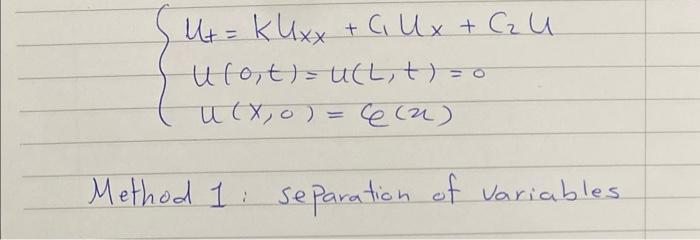 Ut = KUxx + C1 Ux + C2 U
U(0,t) = U(L,t) = 0
U(X,0) = φ(x)
Method 1 : separation of variables